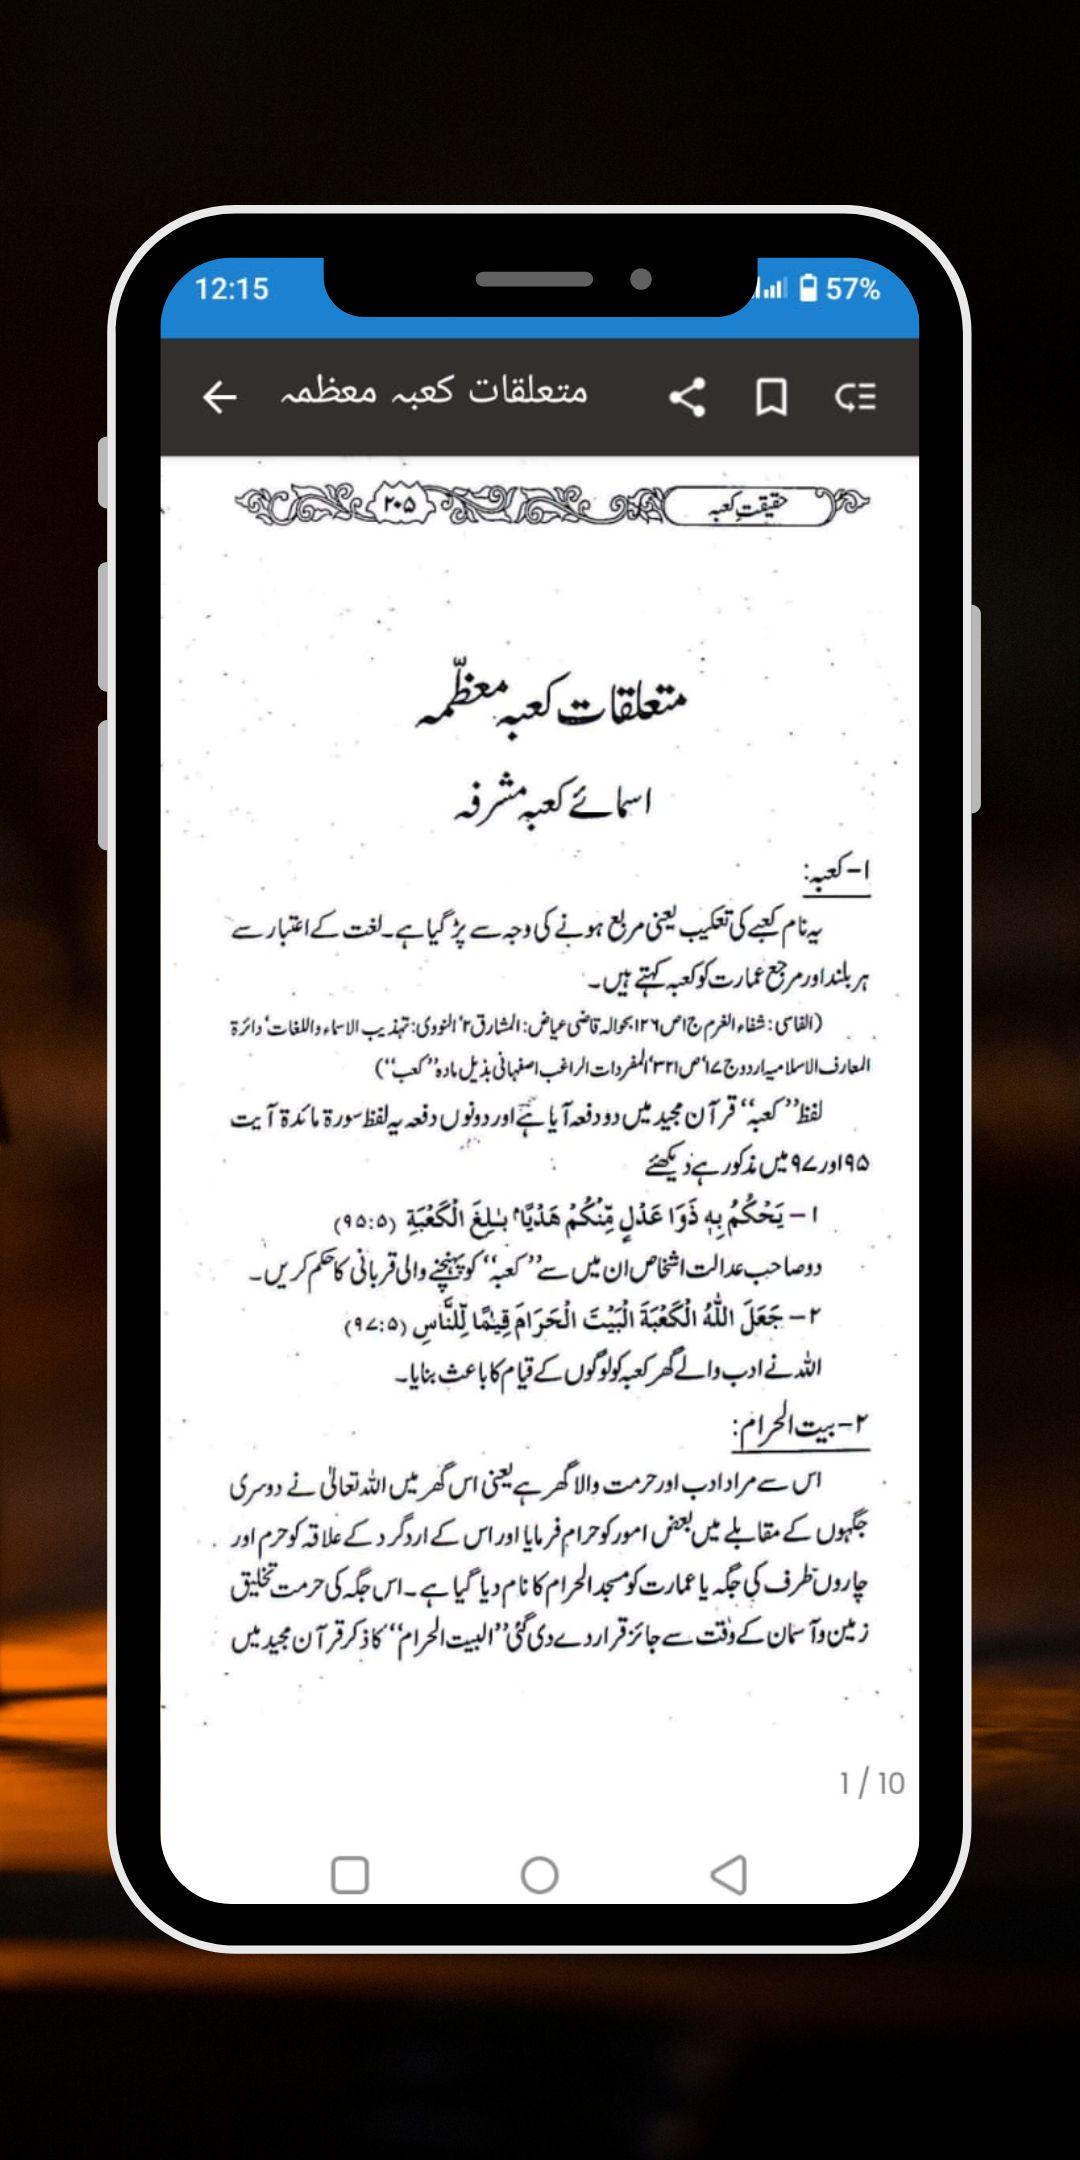 12:15
57%
متعلقات کعبہ معظمہ
حقیقتِ کعبہ
۲۰۵
متعلقات کعبہ معظّمہ
اسمائے کعبہ مشرفہ
۱-کعبہ:
یہ نام کعبے کی تعکیب یعنی مربع ہونے کی وجہ سے پڑ گیا ہے۔ لغت کے اعتبار سے
ہر بلند اور مرجع عمارت کو کعبہ کہتے ہیں۔
(الفاسی: شفاء الغرم ج۱ص۱۲۶بحوالہ قاضی عیاض: المشارق۲' النووی: تہذیب الاسماء واللغات' دائرۃ
المعارف الاسلامیہ اردو ج۱۷'ص۳۲۱'المفردات الراغب اصفہانی بذیل مادہ "کعب")
لفظ "کعبہ" قرآن مجید میں دو دفعہ آیا ہے اور دونوں دفعہ یہ لفظ سورۃ مائدۃ آیت
۹۵اور۹۷ میں مذکور ہے دیکھئے
۱- يَحْكُمُ بِهٖ ذَوَا عَدْلٍ مِّنْكُمْ هَدْيًاۢ بٰلِغَ الْكَعْبَةِ (۹۵:۵)
دو صاحب عدالت اشخاص ان میں سے "کعبہ" کو پہنچنے والی قربانی کا حکم کریں۔
۲- جَعَلَ اللّٰهُ الْكَعْبَةَ الْبَيْتَ الْحَرَامَ قِيٰمًا لِّلنَّاسِ (۹۷:۵)
اللہ نے ادب والے گھر کعبہ کو لوگوں کے قیام کا باعث بنایا۔
۲-بیت الحرام:
اس سے مراد ادب اور حرمت والا گھر ہے یعنی اس گھر میں اللہ تعالیٰ نے دوسری
جگہوں کے مقابلے میں بعض امور کو حرام فرمایا اور اس کے اردگرد کے علاقہ کو حرم اور
چاروں طرف کی جگہ یا عمارت کو مسجد الحرام کا نام دیا گیا ہے۔ اس جگہ کی حرمت تخلیق
زمین و آسمان کے وقت سے جائز قرار دے دی گئی "البیت الحرام" کا ذکر قرآن مجید میں
1 / 10